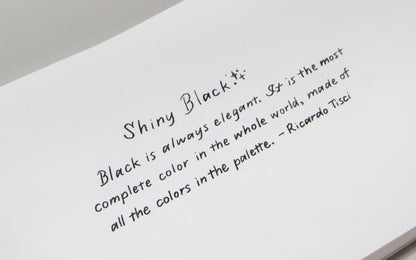 Shiny Black
Black is always elegant. It is the most
complete color in the whole world, made of
all the colors in the palette. - Ricardo Tisci